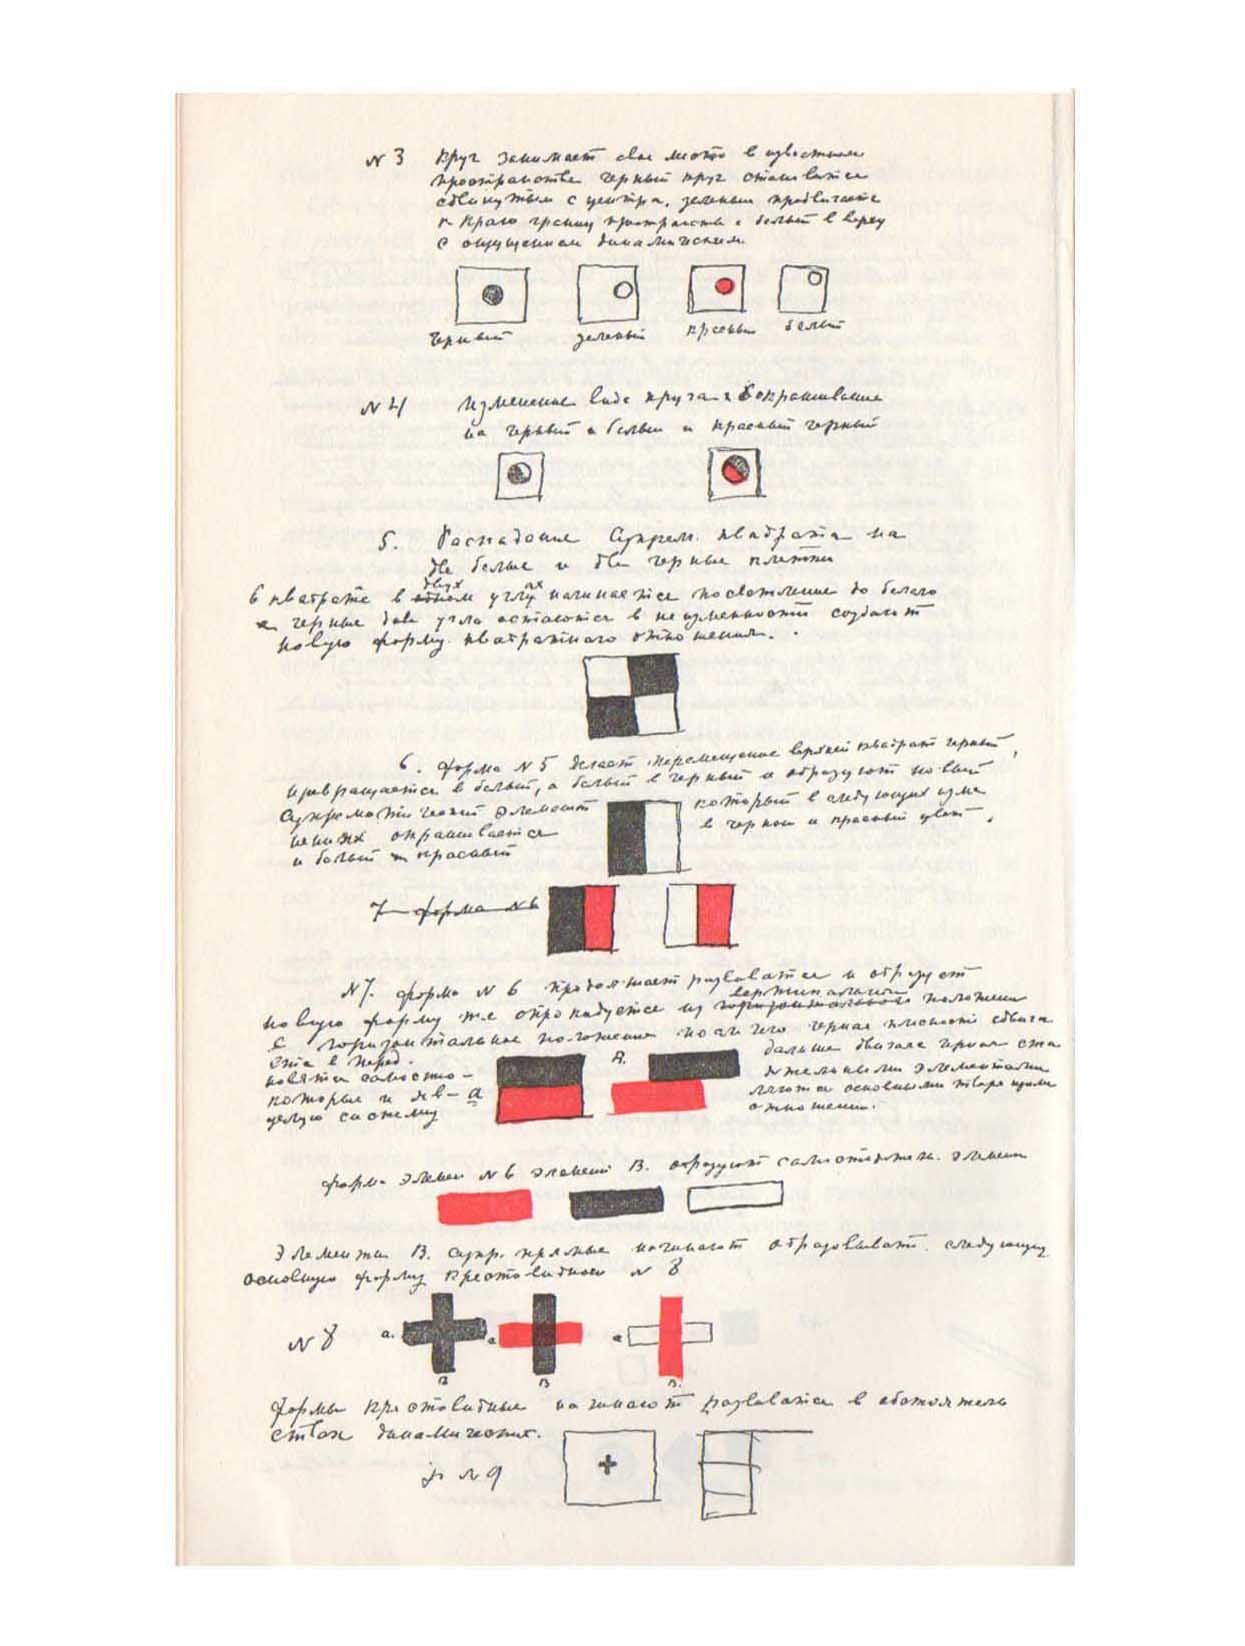 N 3 Круг занимает свое место в известном
пространстве черный круг становится
сдвинутым с центра, зеленый
к краю границ белый в верху
с ощущением динамическим
черный зеленый красный белый
N 4 Изменение вида круга
на черный и белый и красный черный
5. Распадание Супрем. квадрата на
две белые и две черные клетки
двух ах
В квадрате в одном углу начинается посветление до белого
черные два угла остаются в неизменности создают
новую форму квадратного отношения.
6. форма N 5 делает перемещение верхний квадрат черный,
превращается в белый, а белый в черный и образуют новый
Супрематический элемент который в следующих изме
нениях окрашивается в черный и красный цвет,
и белый красный
7 форма N 6
N 7. форма N 6 продолжает развиватся и образует
вертикального
новую форму же опрокидуется из горизонтального положения
в горизонтальное положение после чего черная плоскость сдвига
ется в перед. А. дальше двигаясь черная ста
новятся самосто- ятельными элементами
которые и яв- а ляются основными творящими
целую систему отношений.
форма элемен N 6 элемент В. образуют самостоятел. элемент
Элементы В. супр. прямые начинают образовыват. следующую
основную форму крестовидною N 8
N 8 а. а а
В В В.
Формы крестовидные начинают развиватся в обстоятель
ствах динамических.
N 9